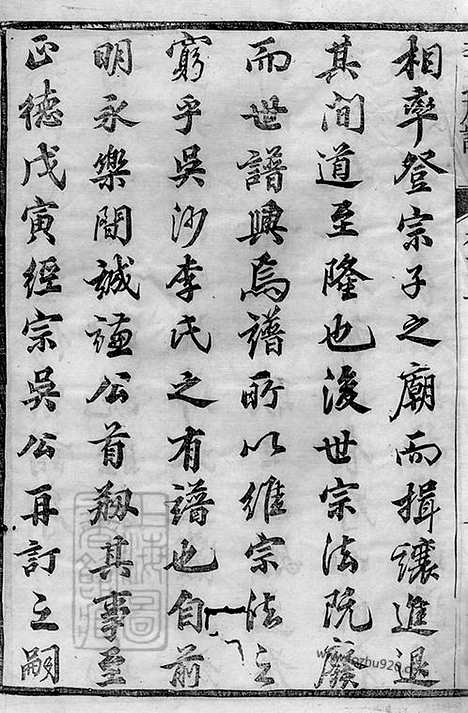 相率登宗子之廟而揖讓進退
其間道至隆也後世宗法既廢
而世譜興焉譜所以維宗法之
窮乎吳沙李氏之有譜也自前
明永樂間誠謹公首剏其事至
正德戊寅經宗吳公再訂之嗣